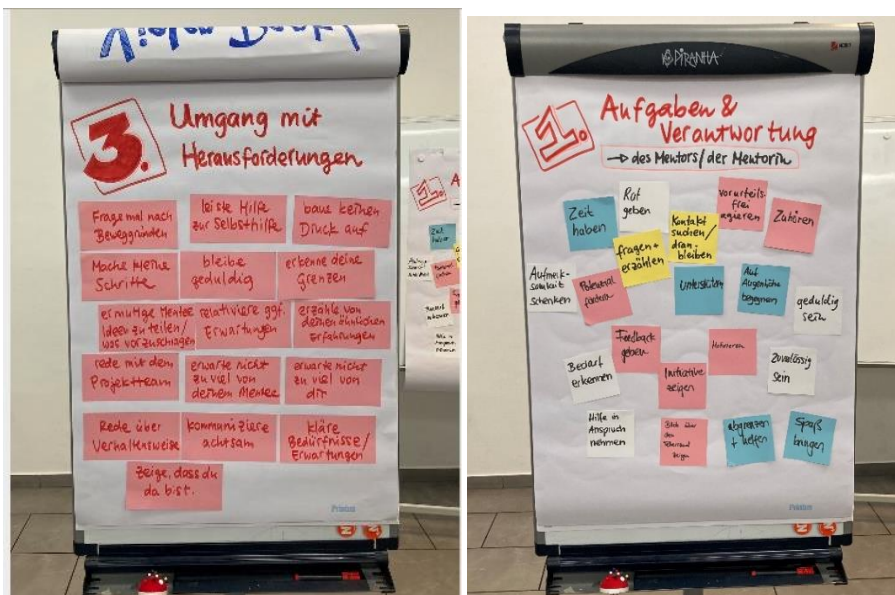 3.
Umgang mit
Herausforderungen
Frage mal nach
Beweggründen
leiste Hilfe
zur Selbsthilfe
baue keinen
Druck auf
Mache kleine
Schritte
bleibe
geduldig
erkenne deine
Grenzen
ermutige Mentee
Ideen zu teilen/
was vorzuschlagen
relativiere ggf.
Erwartungen
erzähle von
deinen ähnlichen
Erfahrungen
rede mit dem
Projektteam
erwarte nicht
zu viel von
deinem Mentee
erwarte nicht
zu viel von
dir
Rede über
Verhaltensweise
kommuniziere
achtsam
kläre
Bedürfnisse/
Erwartungen
zeige, dass du
da bist.
PIRANHA
1.
Aufgaben &
Verantwortung
→ des Mentors/der Mentorin
Zeit
haben
Rat
geben
Kontakt
suchen/
dran-
bleiben
vorurteils-
frei
agieren
Zuhören
fragen +
erzählen
Aufmerk-
samkeit
schenken
Potential
fördern
Unterstützen
Auf
Augenhöhe
begegnen
geduldig
sein
Feedback
geben
Motivieren
Bedarf
erkennen
Initiative
zeigen
Zuverlässig
Sein
Hilfe in
Anspruch
nehmen
Blick über
den
Tellerrand
abgrenzen
+ helfen
Spaß
bringen